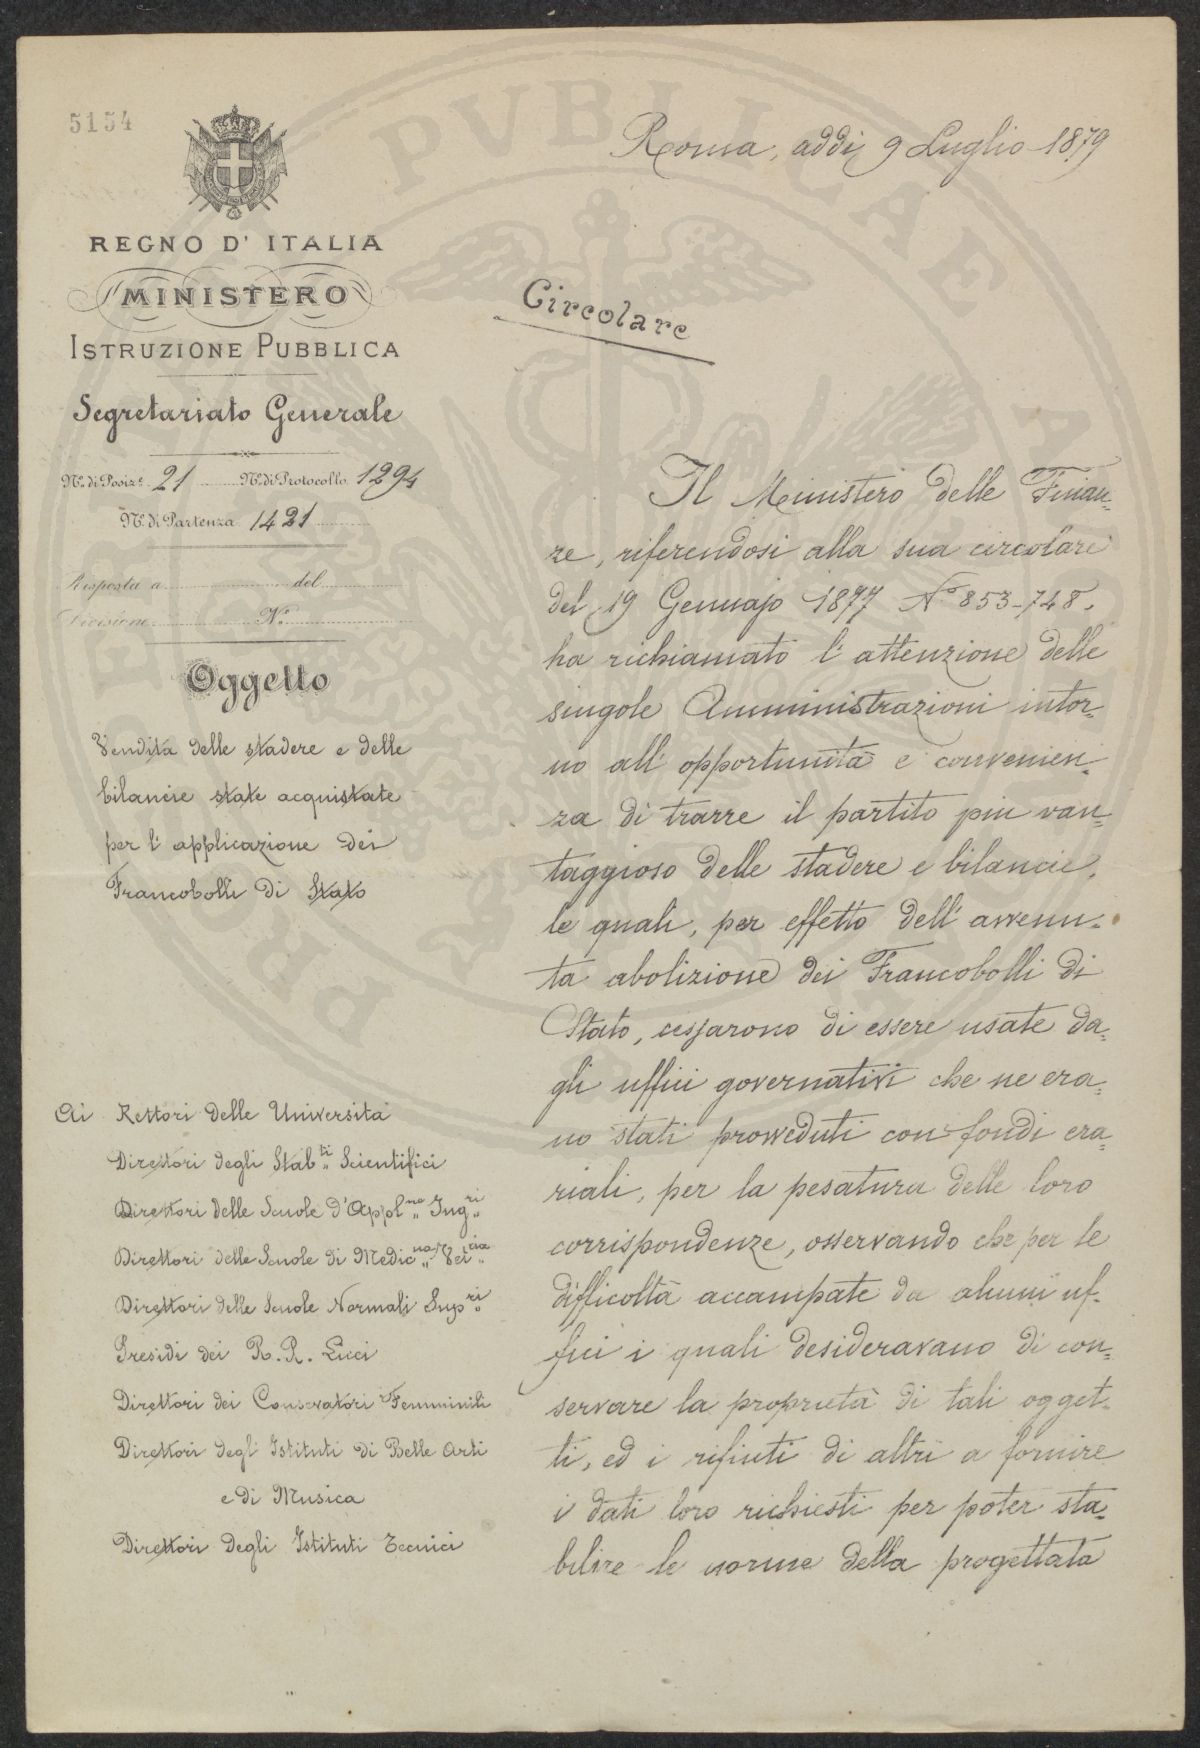 5154
REGNO D' ITALIA
MINISTERO
ISTRUZIONE PUBBLICA
Segretariato Generale
N.° di Posiz.e 21 N.° di Protocollo 1294
N.° di Partenza 1421
Risposta a del
Divisione N.°
Oggetto
Vendita delle stadere e delle
bilancie state acquistate
per l' applicazione dei
Francobolli di Stato
Ai Rettori delle Università
Direttori degli Stab.ti Scientifici
Direttori delle Scuole d'Appl.ne Ing.ri
Direttori delle Scuole di Medic.na Vet.ria
Direttori delle Scuole Normali Sup.ri
Presidi dei R. R. Licei
Direttori dei Conservatori Femminili
Direttori degli Istituti di Belle Arti
e di Musica
Direttori degli Istituti Tecnici
Roma, addì 9 Luglio 1879
Circolare
Il Ministero delle Finan-
ze, riferendosi alla sua circolare
del 19 Gennajo 1877 N.° 853-748,
ha richiamato l' attenzione delle
singole Amministrazioni intor-
no all' opportunità e convenien-
za di trarre il partito più van-
taggioso delle stadere e bilancie,
le quali, per effetto dell' avvenu-
ta abolizione dei Francobolli di
Stato, cessarono di essere usate da-
gli uffici governativi che ne era-
no stati provveduti con fondi era-
riali, per la pesatura delle loro
corrispondenze, osservando che per le
difficoltà accampate da alcuni uf-
fici i quali desideravano di con-
servare la proprietà di tali ogget-
ti, ed i rifiuti di altri a fornire
i dati loro richiesti per poter sta-
bilire le norme della progettata